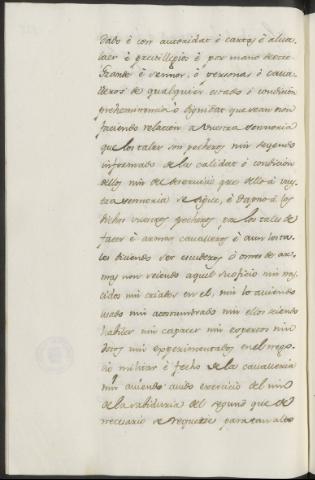 dado è con autoridat è cartas è alva
laes è previllegios è por mano de otro
Grande è Sennor, ò personas è cava
lleros de qualquier estado ò condición
preheminencia ò dignidat que sean non
faciendo relación à vuestra sennoria
que los tales son pecheros nin seyendo
informado de la calidat è condición
dellos nin del deservicio que dello à vues
tra sennoria se sigue, è dapno à los
dichos vuestros pecheros, ca los tales de
facer è armar cavalleros è aun los ta
les diciendo ser escuderos ò omes de ar
mas non seiendo aquel su oficio nin na
cidos nin criados en el, nin lo aviendo
usado nin acostumbrado nin ellos siendo
habiles nin capaces nin espertos nin
dotos nin experimentados en el nego
cio militar è fecho de la cavalleria
nin aviendo avido exercicio del nin
de la sabiduria del segund que de
necesario se requiere para tan alto